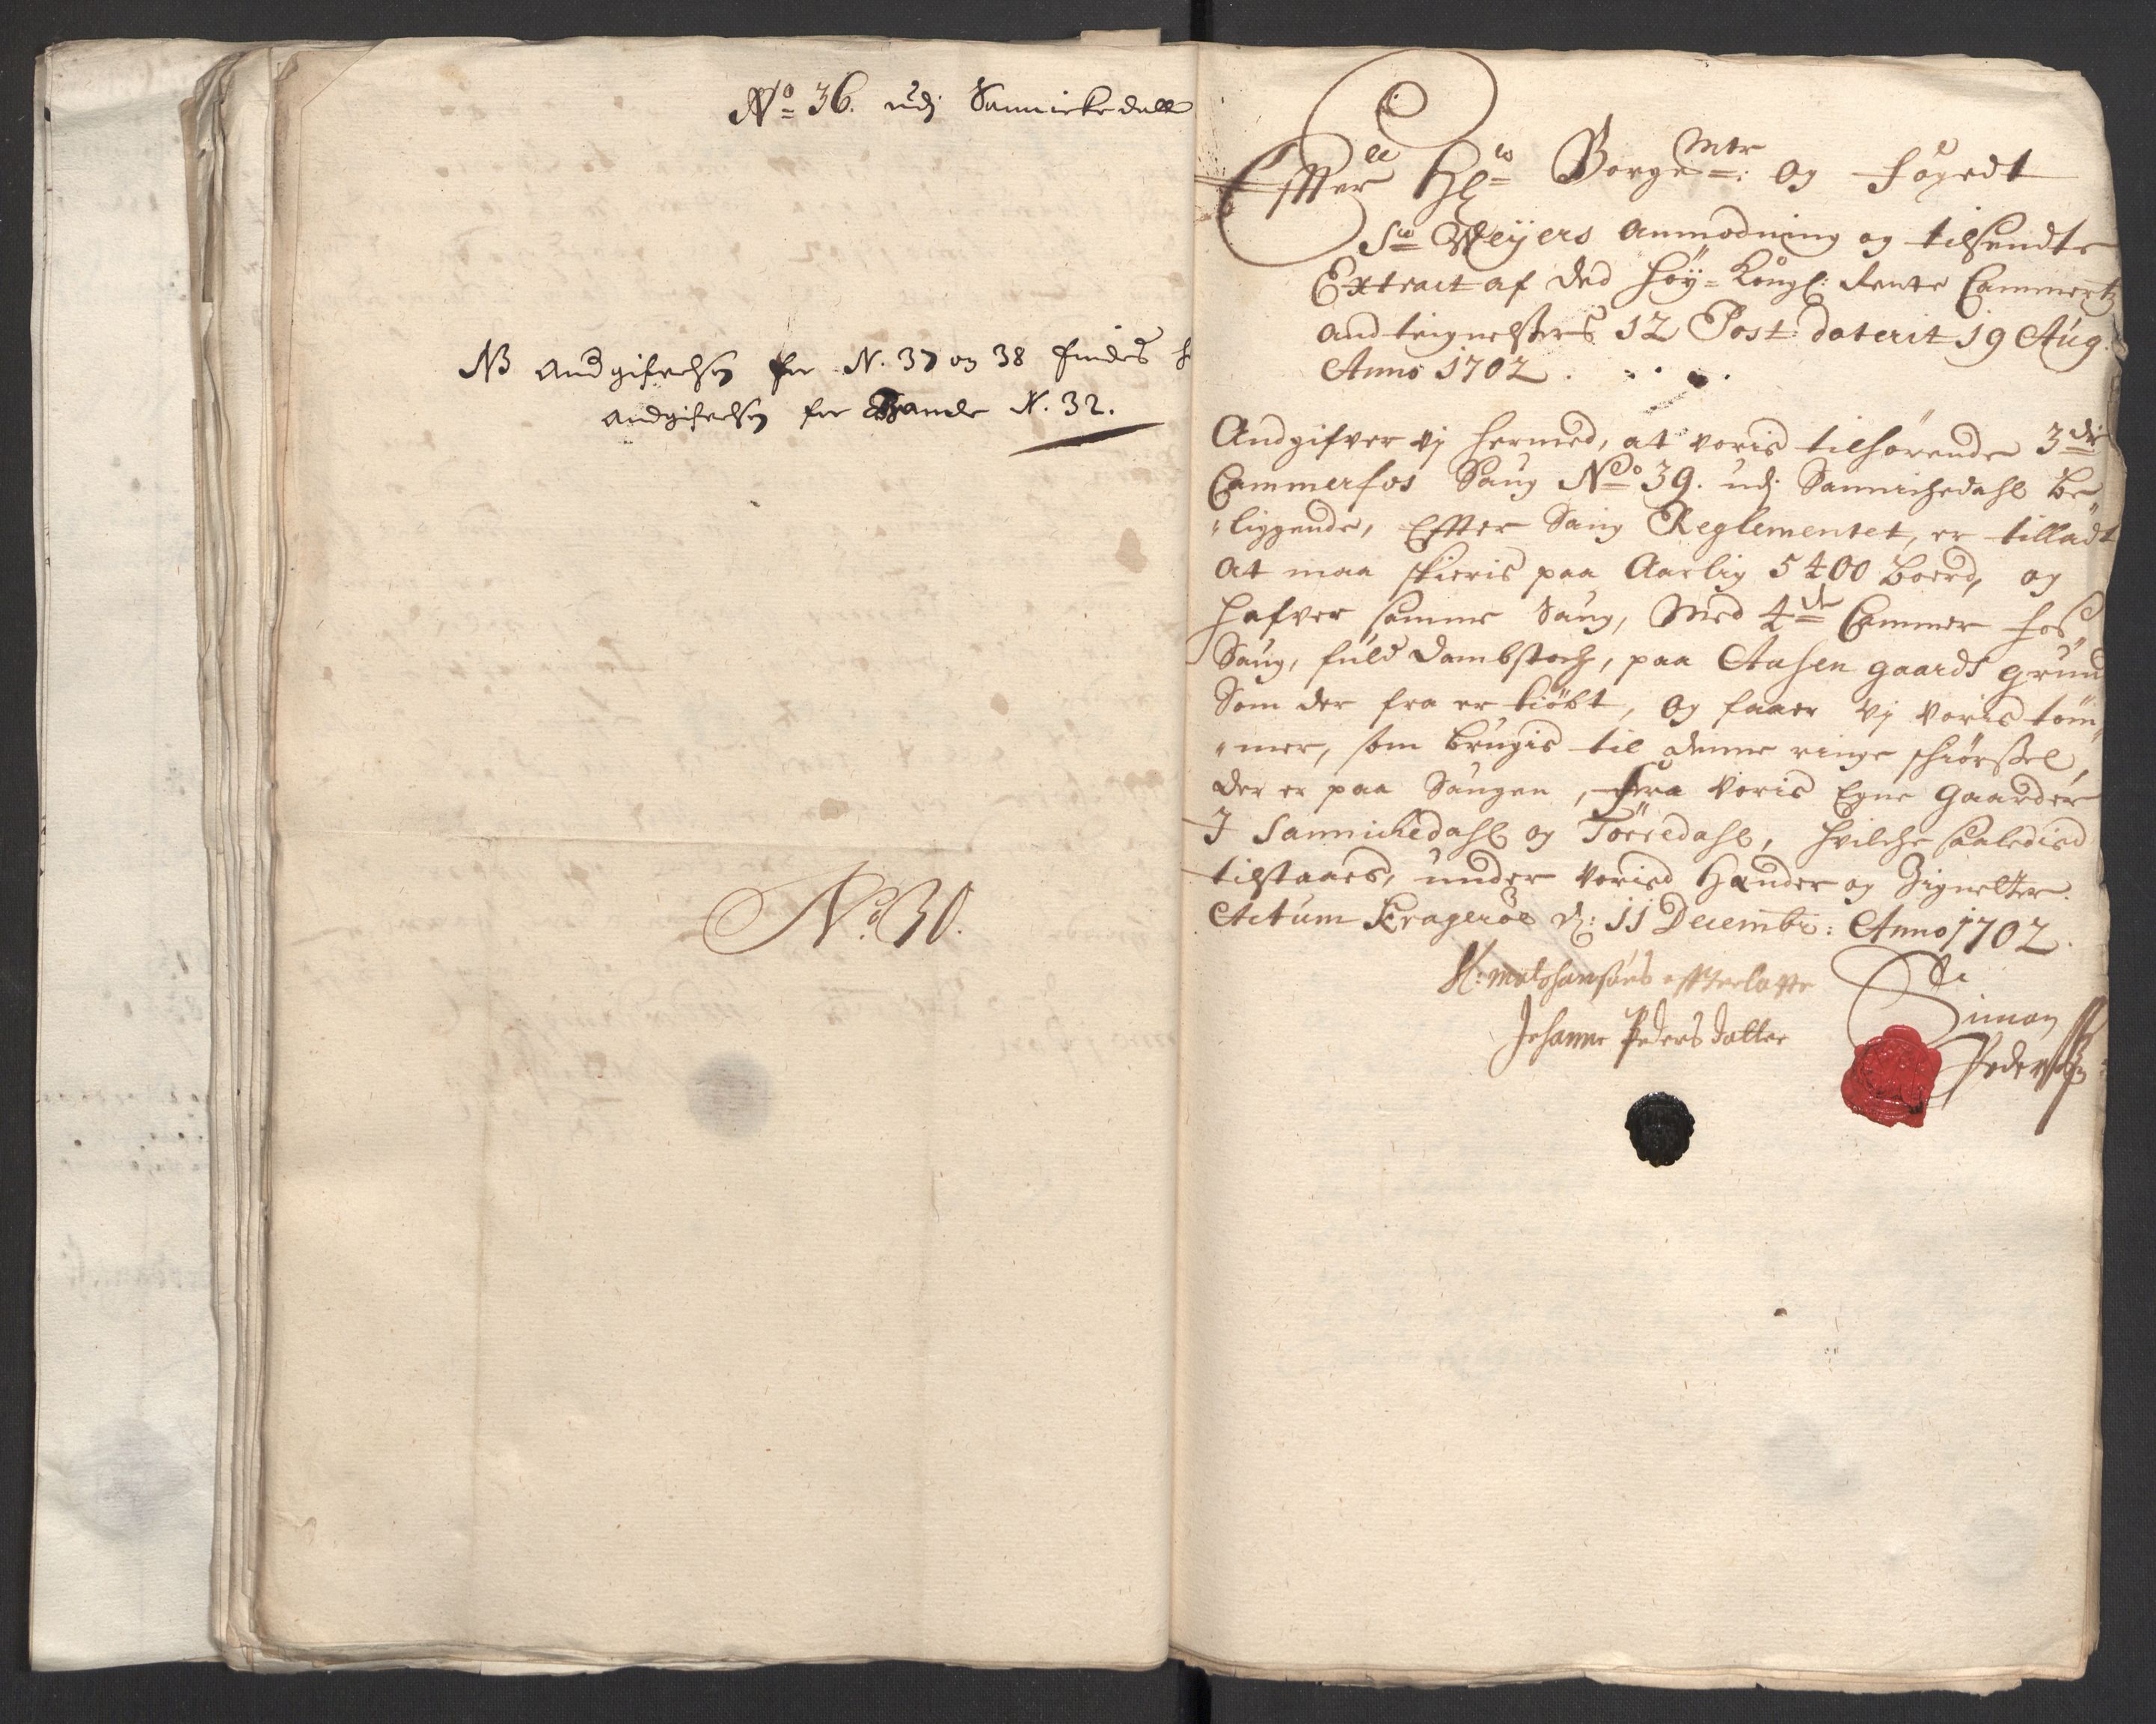 No 36. udj Sannickedall
NB Andgifvelsen for N. 37 og 38 findes
andgifvelsen for Bamle N. 32.
No. 30.
Effter Hr Borgemtr: og fogedt
Sr Weyers anmodning og tilsendte
Extract af ded høy-Kongl: Rente Cammers
andteignelsers 12 Post daterit 19 Aug.
Anno 1702.
Andgifver vj hermed, at voris tilhørende 3die
Cammerfos Saug No 39. udj Sannichedahl be-
liggende, Effter Saug Reglementet, er tilladt
at maa skieris paa Aarlig 5400 bord, og
hafver samme Saug, med 4de Cammer fos
Saug, fuld dambstoch, paa Aasen gaards grund
Som der fra er kiøbt, og faaer vj voris tøm-
mer, som brugis til denne ringe schiørsel,
der er paa Saugen, fra voris Egne gaarder
I Sannichedahl og Tørredahl, hvilche saaledis
tilstaaes, under voris Hænder og Zigneter.
Actum Kragerøe d: 11 Decembr: Anno 1702.
Sl: Mats hansøns effterlatte
Johanne Peders datter
Simon
Pedersen